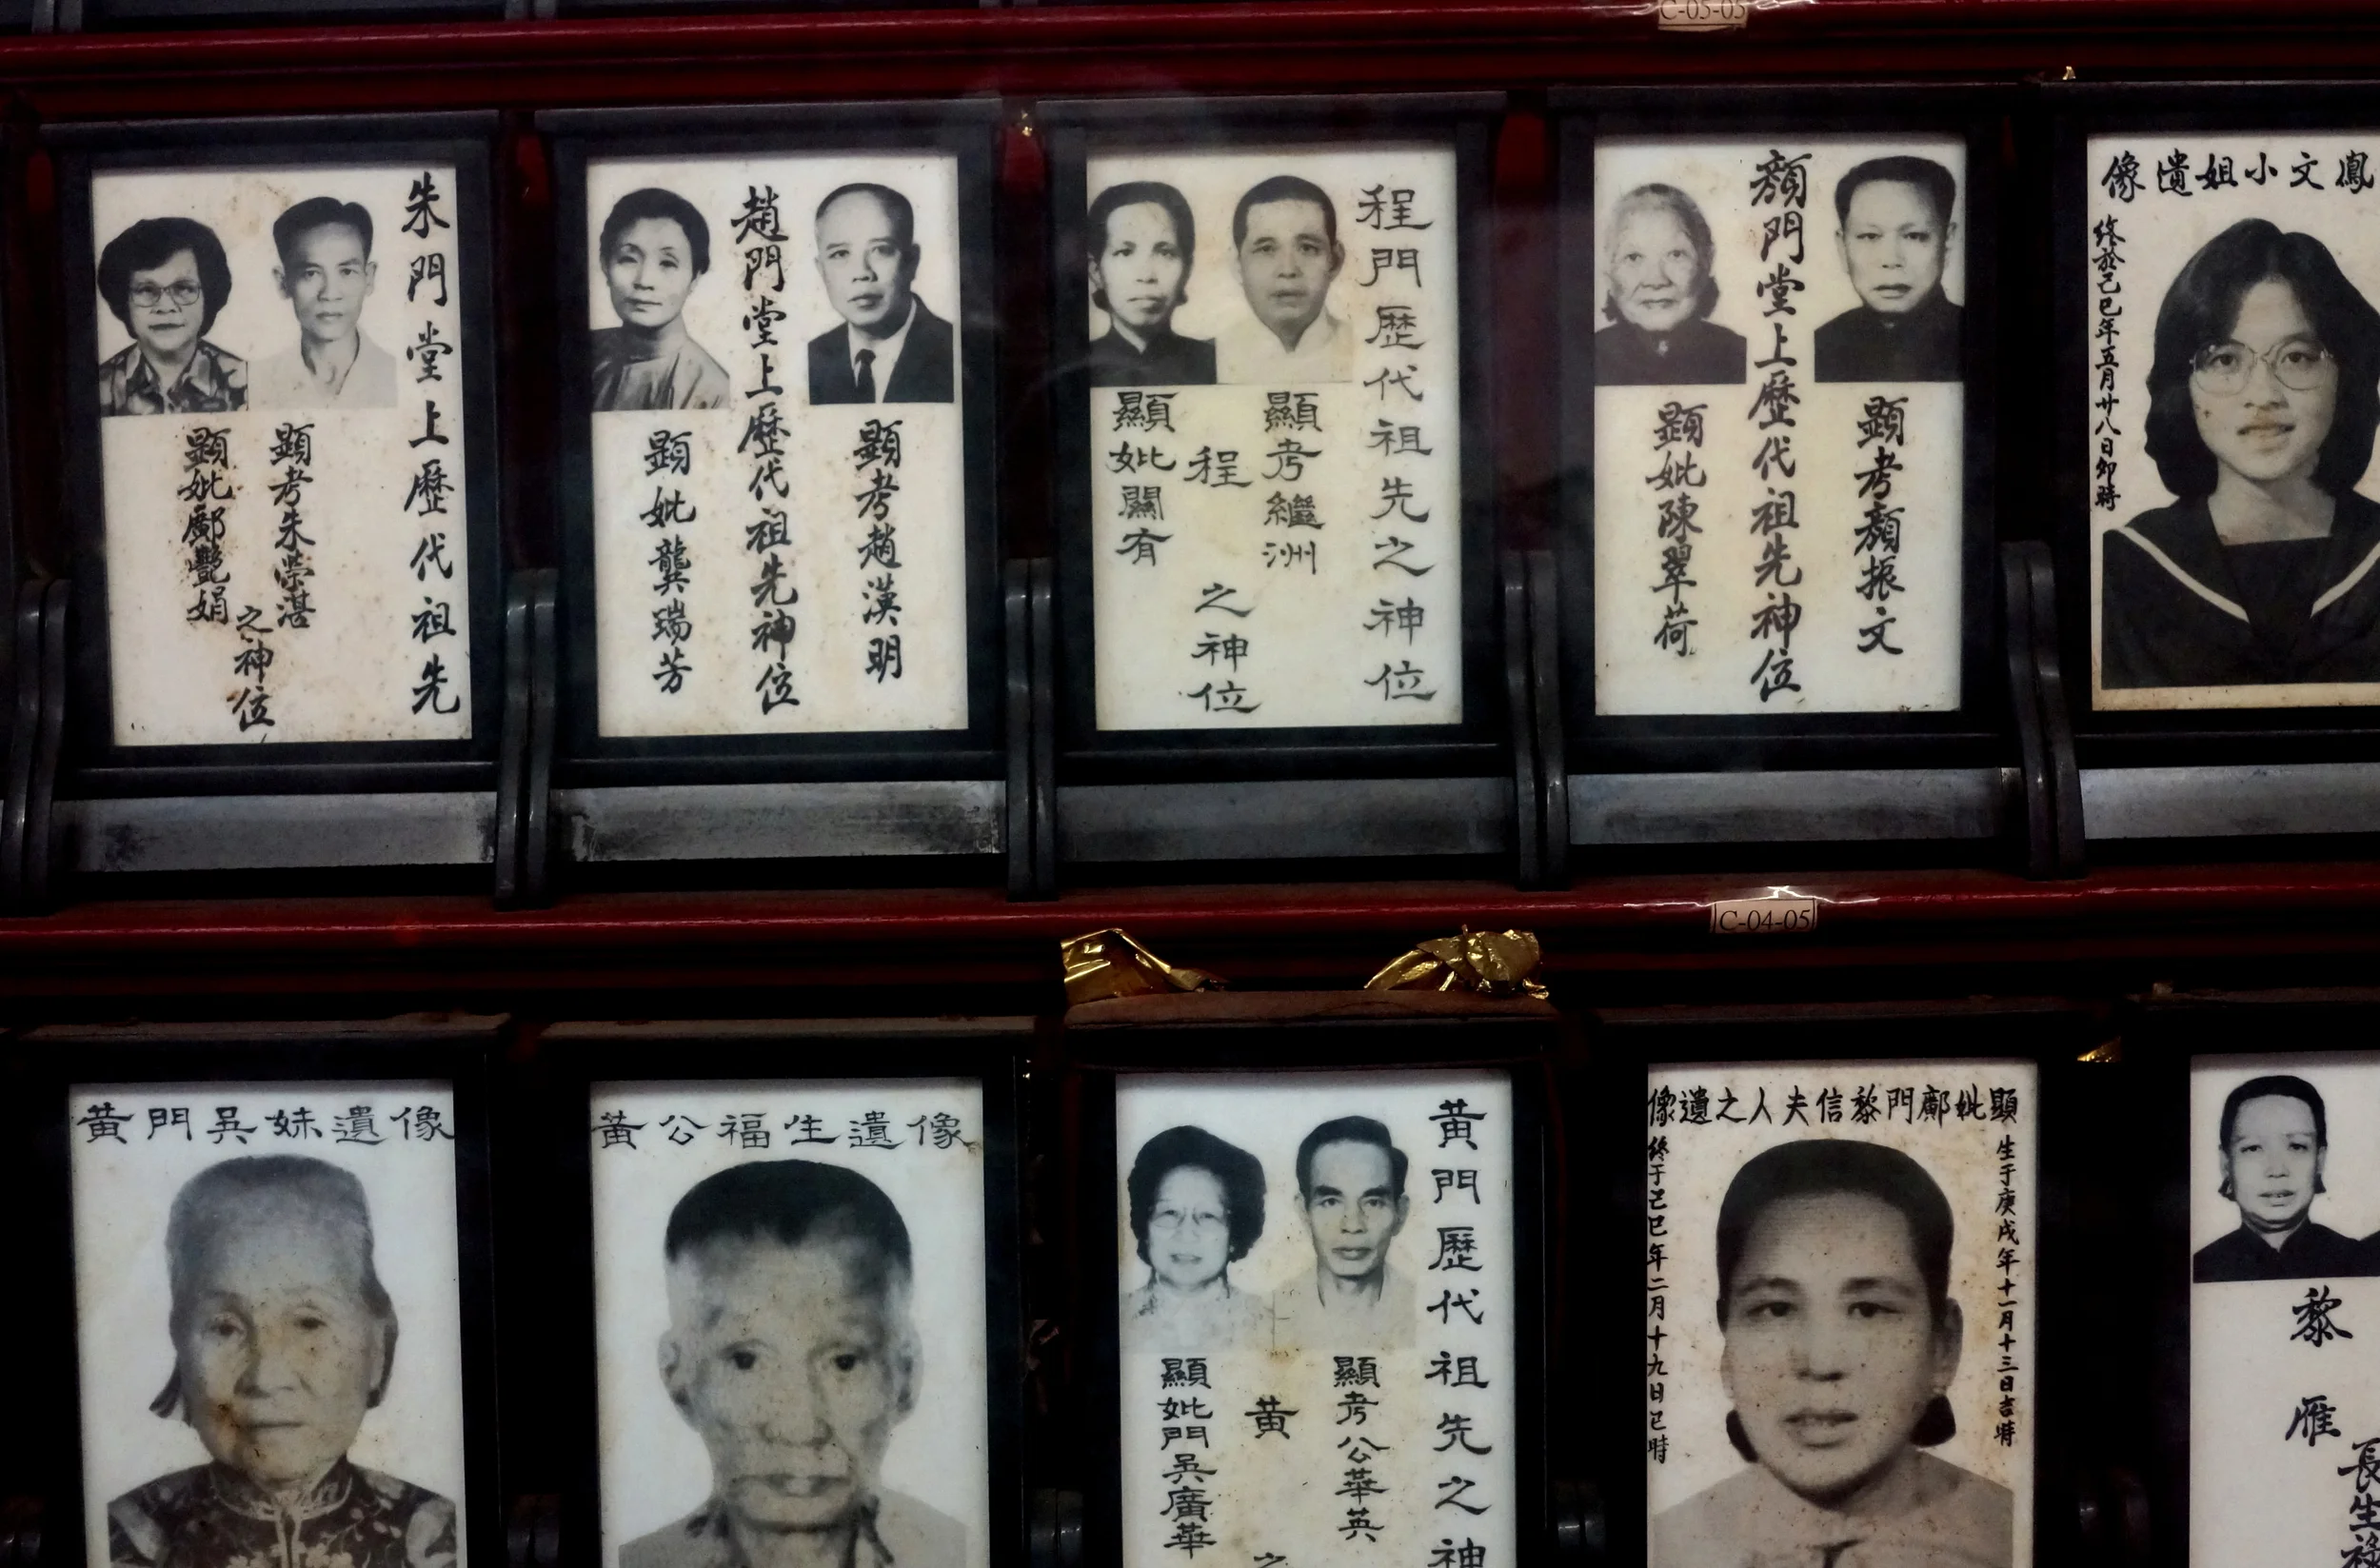 C-05-05
朱門堂上歷代祖先
顕考朱荣湛
顕妣鄺艷娟
之神位
顕考趙漢明
趙門堂上歷代祖先神位
顕妣龔瑞芳
程門歷代祖先之神位
顯考繼洲
程
之神位
顯妣關有
顕考顏振文
顏門堂上歷代祖先神位
顕妣陳翠荷
鳳文小姐遺像
終於己巳年五月廿八日卯時
C-04-05
黃門吳妹遺像
黃公福生遺像
黃門歷代祖先之神
顯考公華英
黃
之
顯妣門吳廣華
顕妣鄺門黎信夫人之遺像
生于庚戌年十一月十三日吉時
終于己巳年二月十九日巳時
黎雁
長生祿